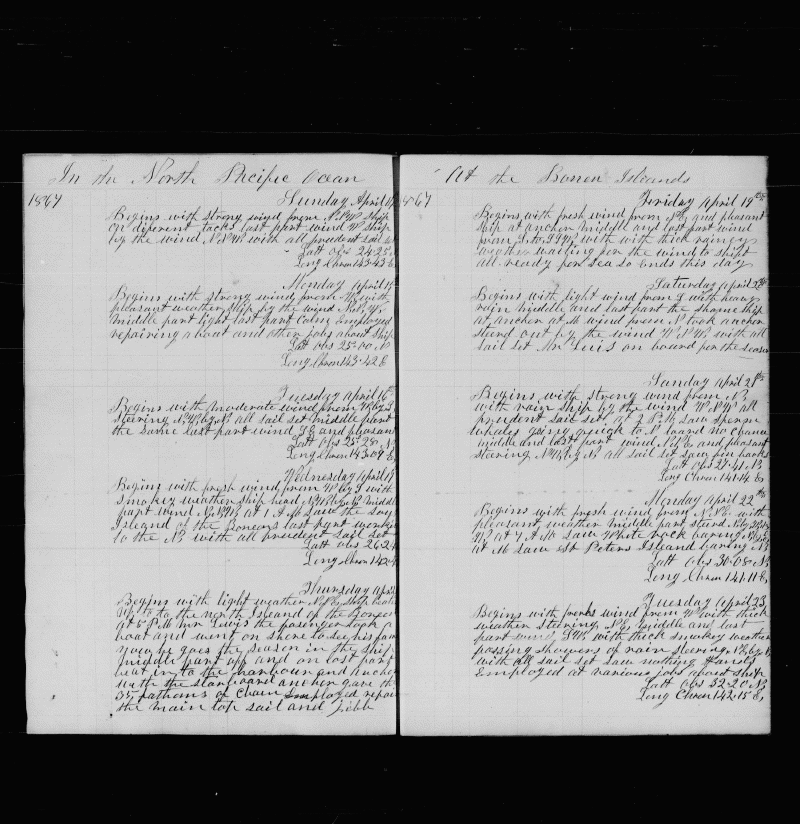 In the North Pacific Ocean
1867
Sunday April
Begins with strong wind from N.N.W. Ship
on diferent tacks last part wind W ship
by the wind N.N.W with all prudent sail set
Latt obs 24-25
Long Chron 143-43 E
Monday April
Begins with strong wind from with
pleasant weather ship by the wind
middle part light last part calm Employed
repairing about and other jobs about ship
Latt obs 25-00 N
Long Chron 143-42 E
Tuesday April 16th
Begins with moderate wind from W by S
steering N.W. by N all sail set middle part
the same last part wind SE and pleasant
Latt obs 25-28 N
Long Chron 143-09 E
Wednesday April 17
Begins with fresh wind from W by S with
smokey weather ship head middle
part wind N.N.W at 1 A.M Saw the
Island of the Bonens last part
to the N with all prudent sail set
Latt obs 26-24
Long Chron 142-
Thursday April
Begins with light weather ship
up to the north Island of the Bonens
at 6 P.M Mr Lewis the passenger took a
boat and went on shore to see his
now he goes the season in the ship
middle part off and on last part
beat in to the harbour and anchor
with the starboard anchor gave th
35 fathoms of chain Employed repair
the main top sail and Jibb
At the Bonen Isleands
1867
Friday April 19th
Begins with fresh wind from and pleasant
ship at anchor middle and last part wind
from S to SSW with with thick rainey
weather waiting for the wind to shift
all ready for sea so Ends this day
Saturday April 20th
Begins with light wind from S with heavy
rain middle and last part the shame ship
at anchor at M wind from N took anchor
steerd out by the wind W.N.W with all
sail set Mr Luis on bound for the season
Sunday April 21th
Begins with strong wind from N.
with rain ship by the wind W.N.W all
prudent sail set at 2 P.M Saw sperm
whales going quick to N no chance
middle and last part wind and pleasant
steering all sail set saw fin backs
Latt obs 27-41 N
Long Chron 141-14 E
Monday April 22th
Begins with fresh wind from N.E. with
pleasant weather middle part steerd
at 7 A.M Saw White rock baring
at M Saw St Peters Island baring N
Latt obs 30-08 N
Long Chron 141-11 E
Tuesday April 23
Begins with fresh wind from W with thick
weather steering N.E middle and last
part wind with thick smokey weather
passing showers of rain steering
with all sail set saw nothing
Employed at various jobs about ship
Latt obs 32-20 N
Long Chron 142-15 E